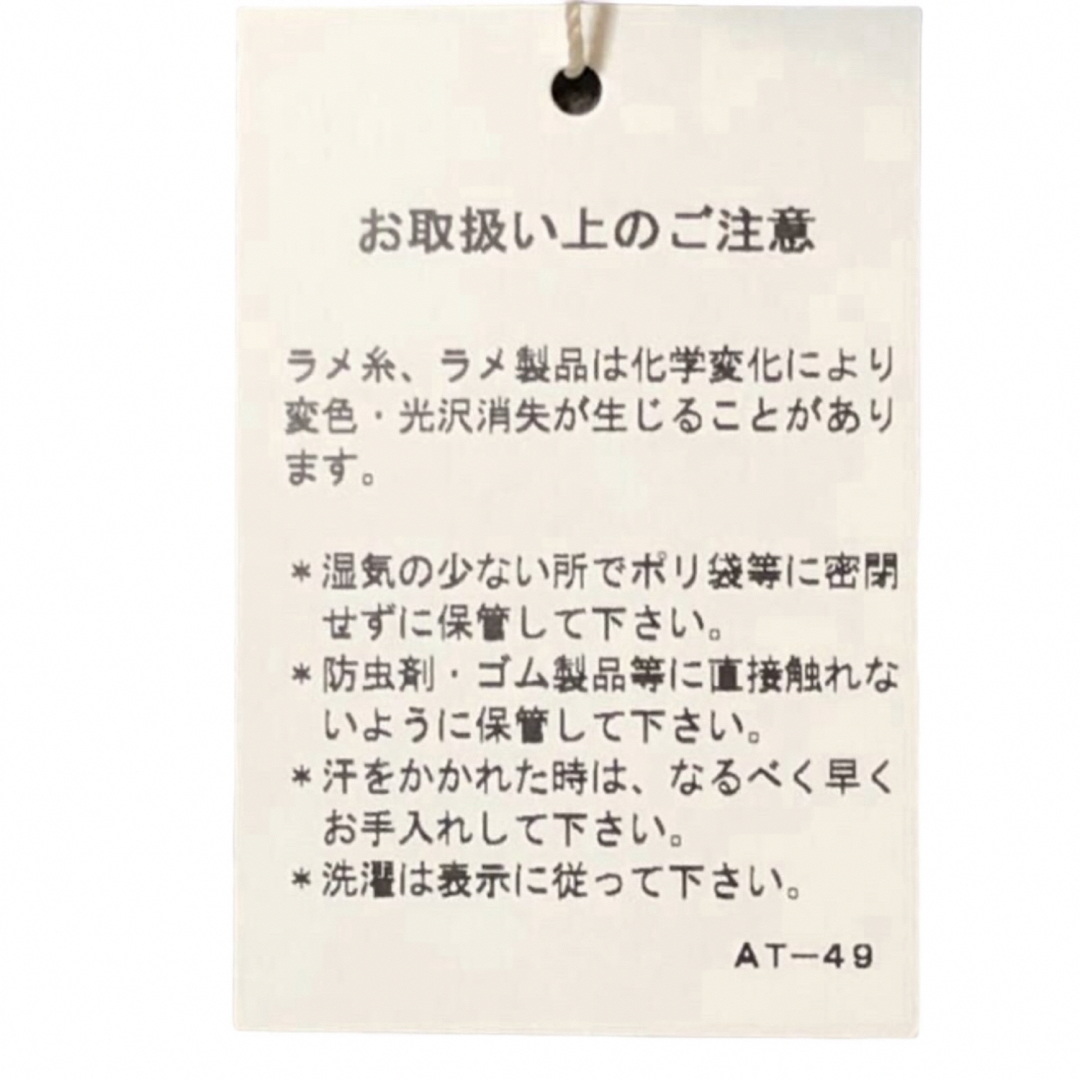 お取扱い上のご注意
ラメ糸、ラメ製品は化学変化により
変色・光沢消失が生じることがあり
ます。
＊湿気の少ない所でポリ袋等に密閉
せずに保管して下さい。
＊防虫剤・ゴム製品等に直接触れな
いように保管して下さい。
＊汗をかかれた時は、なるべく早く
お手入れして下さい。
＊洗濯は表示に従って下さい。
AT－49